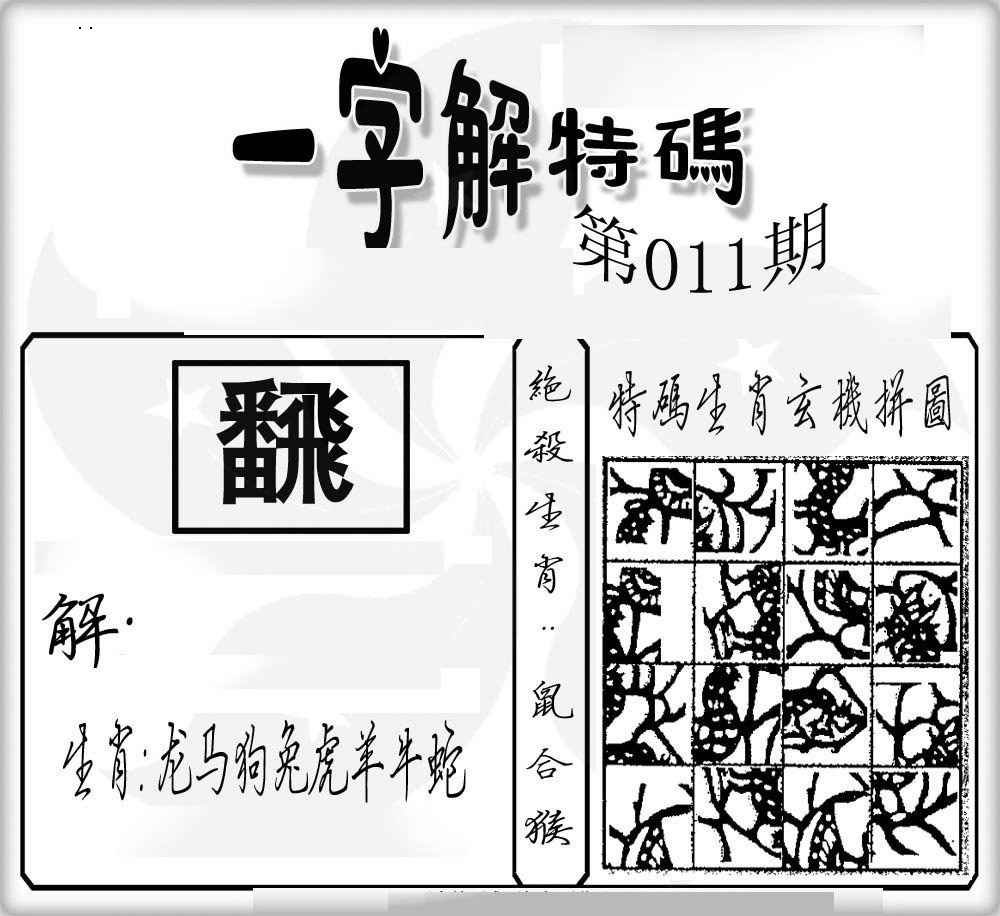 一字解特碼
第011期
飜
解:
生肖:龙马狗兔虎羊牛蛇
絶殺生肖:鼠合猴
特碼生肖玄機拼圖